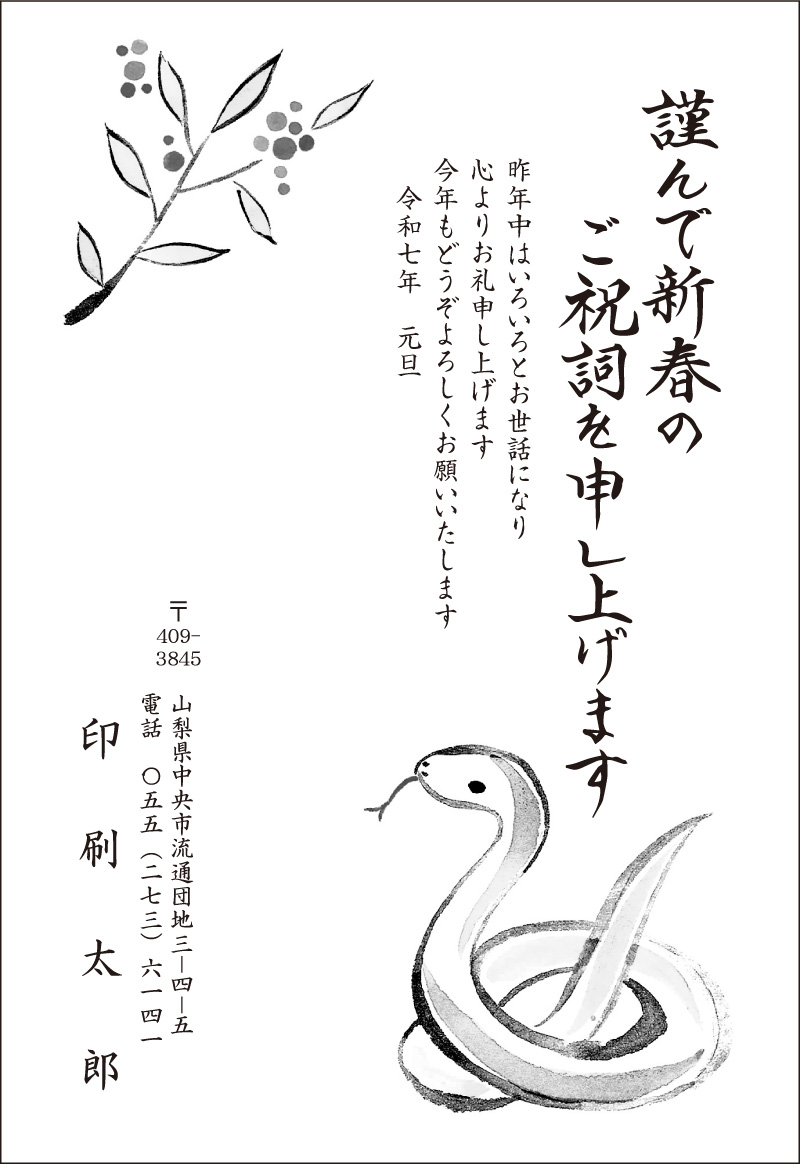 謹んで新春の
ご祝詞を申し上げます
昨年中はいろいろとお世話になり
心よりお礼申し上げます
今年もどうぞよろしくお願いいたします
令和七年　元旦
〒
409-
3845
山梨県中央市流通団地三―四―五
電話　〇五五（二七三）六一四一
印刷太郎